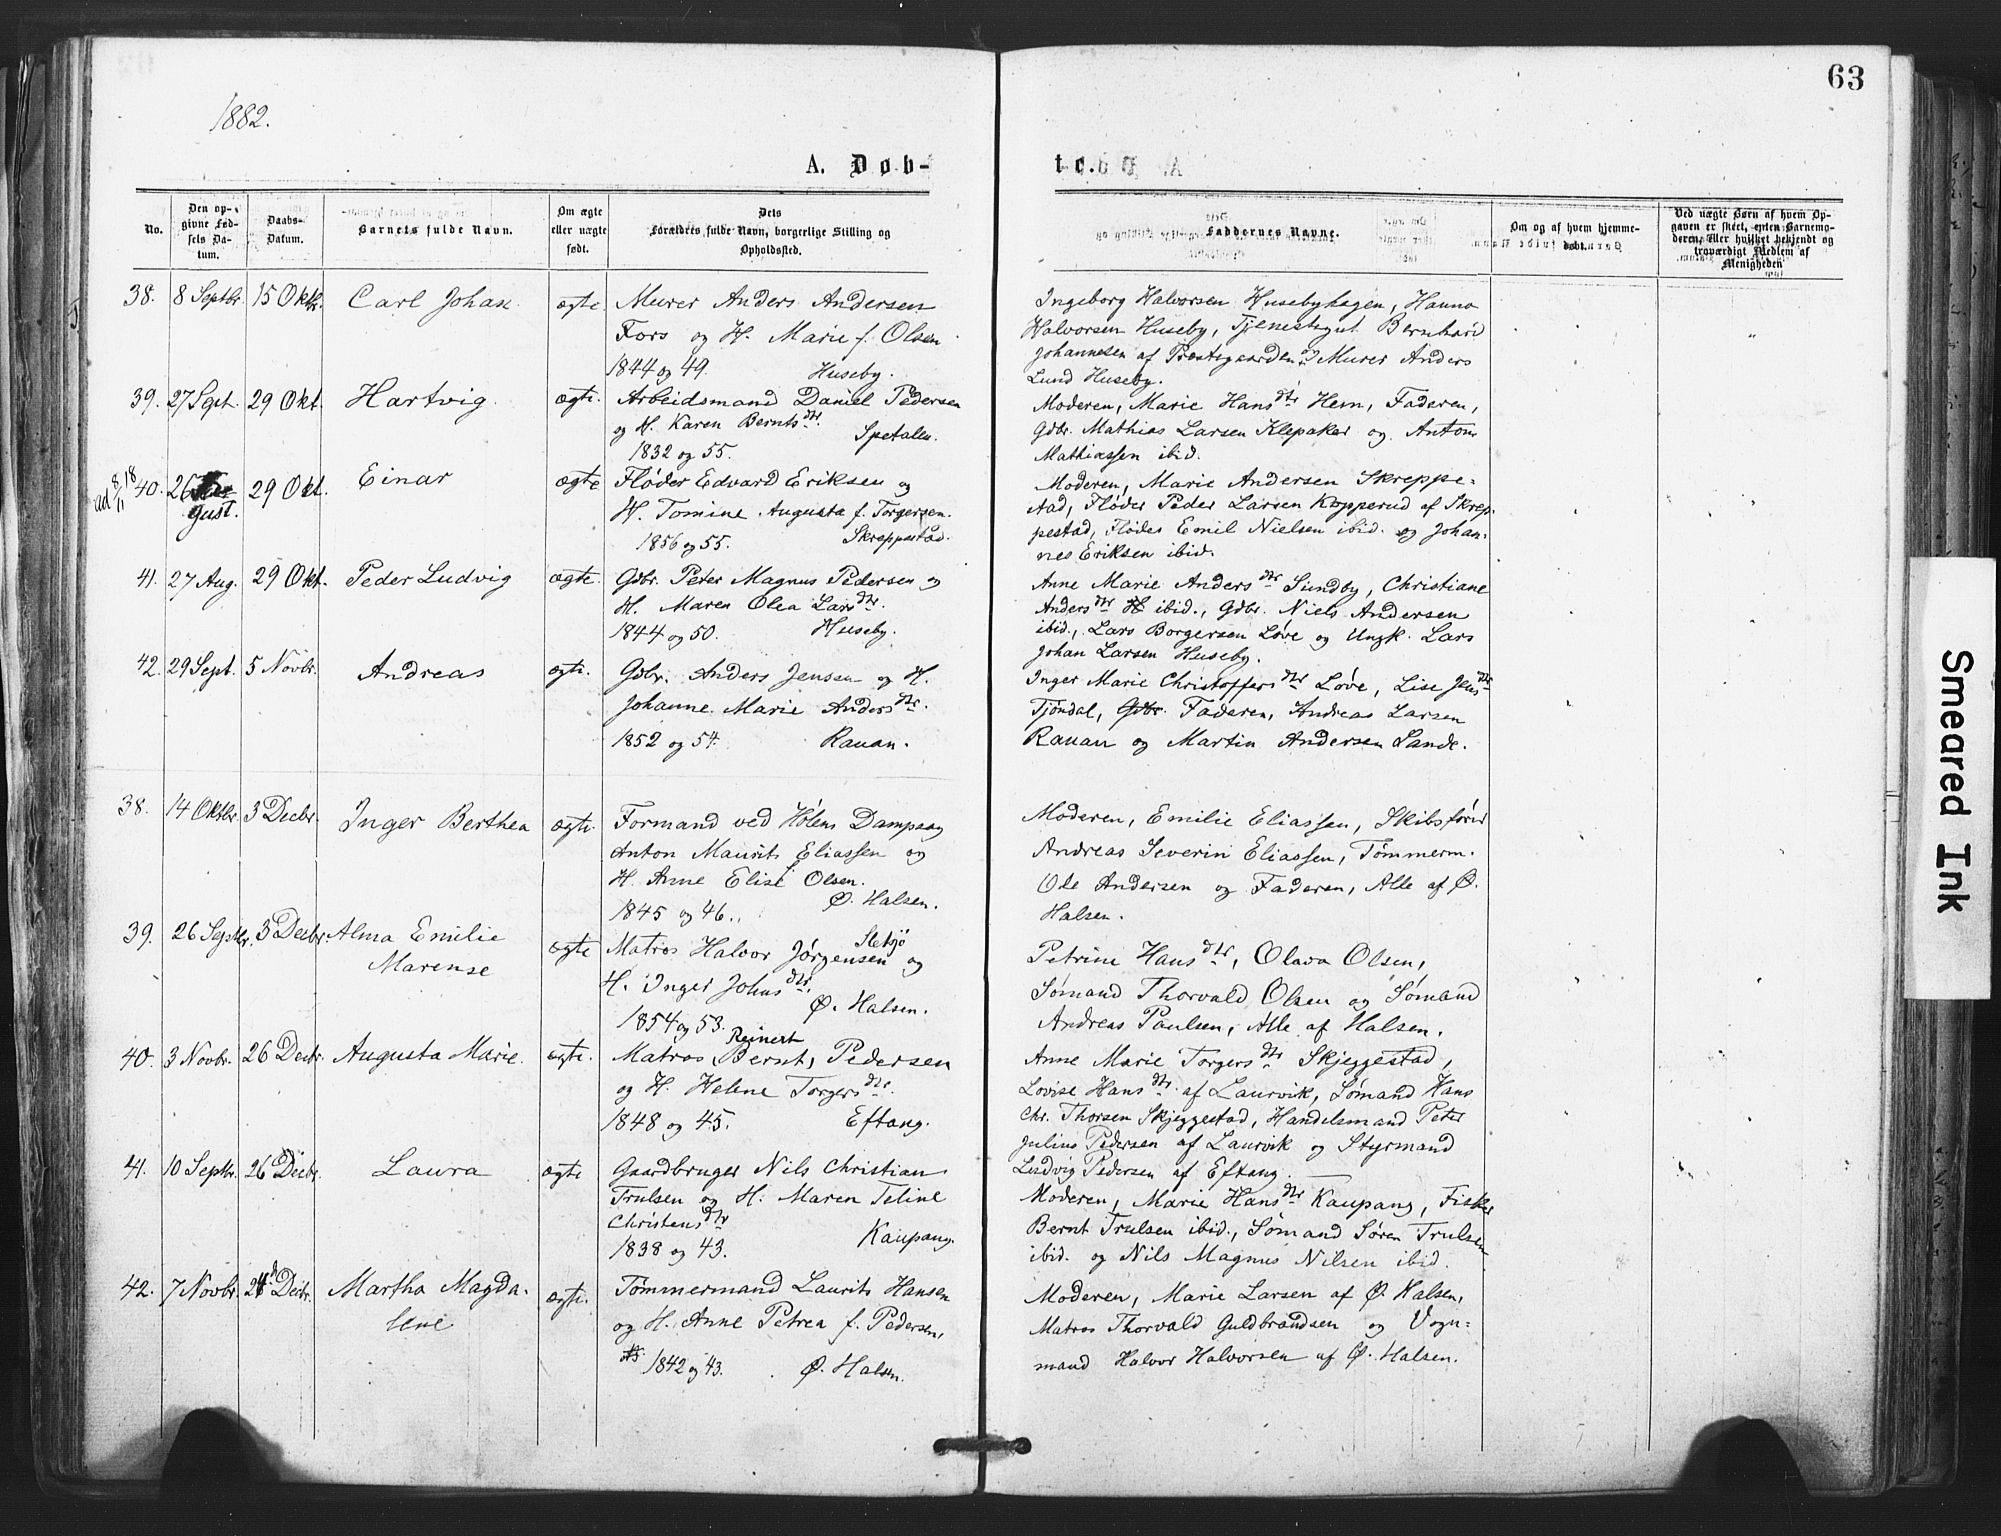 63
1882.
A. Døb-
te.
No.
Den op-
givne Fød-
sels Da-
tum.
Daabs-
Datum.
Barnets fulde Navn.
Om ægte
eller uægte
født.
Dets
Forældres fulde Navn, borgerlige Stilling og
Opholdssted.
Faddernes Navne.
Om og af hvem hjemme-
døbt.
Ved uægte Børn af hvem Op-
gaven er skeet, enten Barnemo-
deren, eller hvilket bekjendt og
troværdigt Medlem af
Menigheden
38. 8 Septbr. 15 Oktbr. Carl Johan ægte Murer Anders Andersen
Fors og H. Marie f. Olsen
1844 og 49. Huseby.
Ingeborg Halvorsen Husebyhagen, Hanna
Halvorsen Huseby, Tjenestegut Bernhard
Johannesen af Præstegaarden og Murer Anders
Lund Huseby.
39. 27 Sept. 29 Okt. Hartvig ægte. Arbeidsmand Daniel Pedersen
og H. Karen Berntsdtr.
1832 og 55. Spetalen.
Moderen, Marie Hansdtr Hem, Faderen,
Gdbr. Mathias Larsen Klepaker og Anton
Mathiassen ibid.
ad 8/11 18
40. 26 August. 29 Okt. Einar ægte Fløder Edvard Eriksen og
H. Tomine Augusta f. Torgersen.
1856 og 55. Skreppestad.
Moderen, Marie Andersen Skreppe-
stad, Fløder Peder Larsen Kopperud af Skrep-
pestad, Fløder Emil Nielsen ibid. og Johan-
nes Eriksen ibid.
41. 27 Aug. 29 Okt. Peder Ludvig ægte. Gdbr. Peter Magnus Pedersen og
H. Maren Olea Larsdtr.
1844 og 50. Huseby.
Anne Marie Andersdtr Sundby, Christiane
Andersdtr ibid., Gdbr. Niels Andersen
ibid., Lars Borgersen Løve og Ungk. Lars
Johan Larsen Huseby.
42. 29 Sept. 5 Novbr. Andreas ægte. Gdbr. Anders Jensen og H.
Johanne Marie Andersdtr.
1852 og 54. Rauan.
Inger Marie Christoffersdtr Løve, Lise Jensdtr
Tjøndal, Gdbr. Faderen, Andreas Larsen
Rauan og Martin Andersen Lande.
38. 14 Oktbr. 3 Decbr. Inger Berthea ægte. Formand ved Hølens Dampsag
Anton Maurits Eliassen og
H. Anne Elise Olsen.
1845 og 46. Ø. Halsen.
Moderen, Emilie Eliassen, Skibsfører
Andreas Severin Eliassen, Tømmerm.
Ole Andersen og Faderen, Alle af Ø.
Halsen.
39. 26 Septbr. 3 Decbr. Alma Emilie
Marense ægte Matros Halvor Jørgensen og
H. Inger Johnsdtr.
1854 og 53. Ø. Halsen.
Petrine Hansdtr, Olava Olsen,
Sømand Thorvald Olsen og Sømand
Andreas Paulsen, Alle af Halsen.
40. 3 Novbr. 26 Decbr. Augusta Marie. ægte. Matros Bernt Reinert Pedersen
og H. Helene Torgersdtr.
1848 og 45. Eftang.
Anne Marie Torgersdtr Skjeggestad,
Lovise Hansdtr. af Laurvik, Sømand Hans
Chr. Thorsen Skjeggestad, Handelsmand Peter
Julius Pedersen af Laurvik og Styrmand
Ludvig Pedersen af Eftang.
41. 10 Septbr. 26 Decbr. Laura ægte Gaardbruger Nils Christian
Trulsen og H. Maren Teline
Christensdtr
1838 og 43. Kaupang.
Moderen, Marie Hansdtr Kaupang, Fisker
Bernt Trulsen ibid., Sømand Søren Trulsen
ibid. og Nils Magnus Nilsen ibid.
42. 7 Novbr. Decbr. Martha Magda-
lene ægte. Tømmermand Laurits Hansen
og H. Anne Petrea f. Pedersen,
1842 og 43. Ø. Halsen.
Moderen, Marie Larsen af Ø. Halsen,
Matros Thorvald Guldbrandsen og Vogn-
mand Halvor Halvorsen af Ø. Halsen.
Smeared Ink